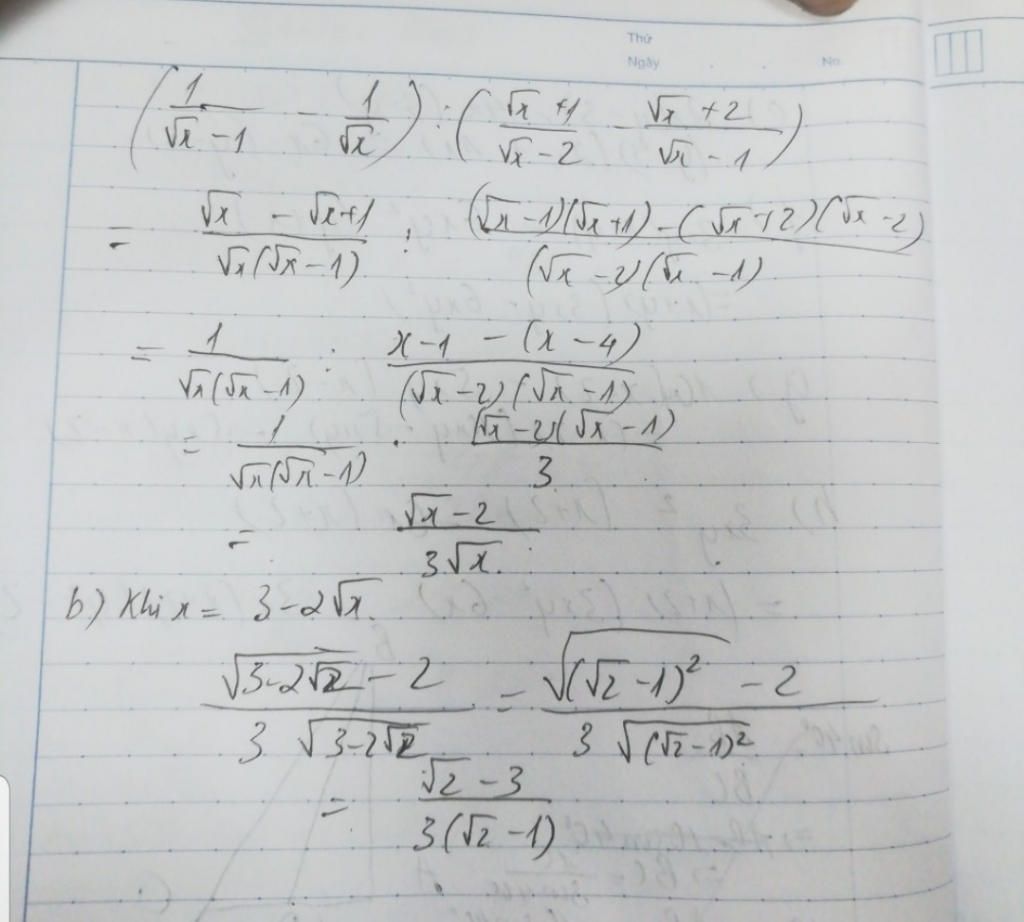 Thứ
Ngày . . No.
(1/(√x - 1) - 1/√x) : ((√x + 1)/(√x - 2) - (√x + 2)/(√x - 1))
= (√x - √x + 1)/(√x(√x - 1)) : ((√x - 1)(√x + 1) - (√x + 2)(√x - 2))/((√x - 2)(√x - 1))
= 1/(√x(√x - 1)) : (x - 1 - (x - 4))/((√x - 2)(√x - 1))
= 1/(√x(√x - 1)) . (√x - 2)(√x - 1)/3
= (√x - 2)/(3√x)
b) Khi x = 3 - 2√x.
(√(3 - 2√2) - 2)/(3 √(3 - 2√2)) = (√((√2 - 1)²) - 2)/(3 √((√2 - 1)²))
= (√2 - 3)/(3(√2 - 1))